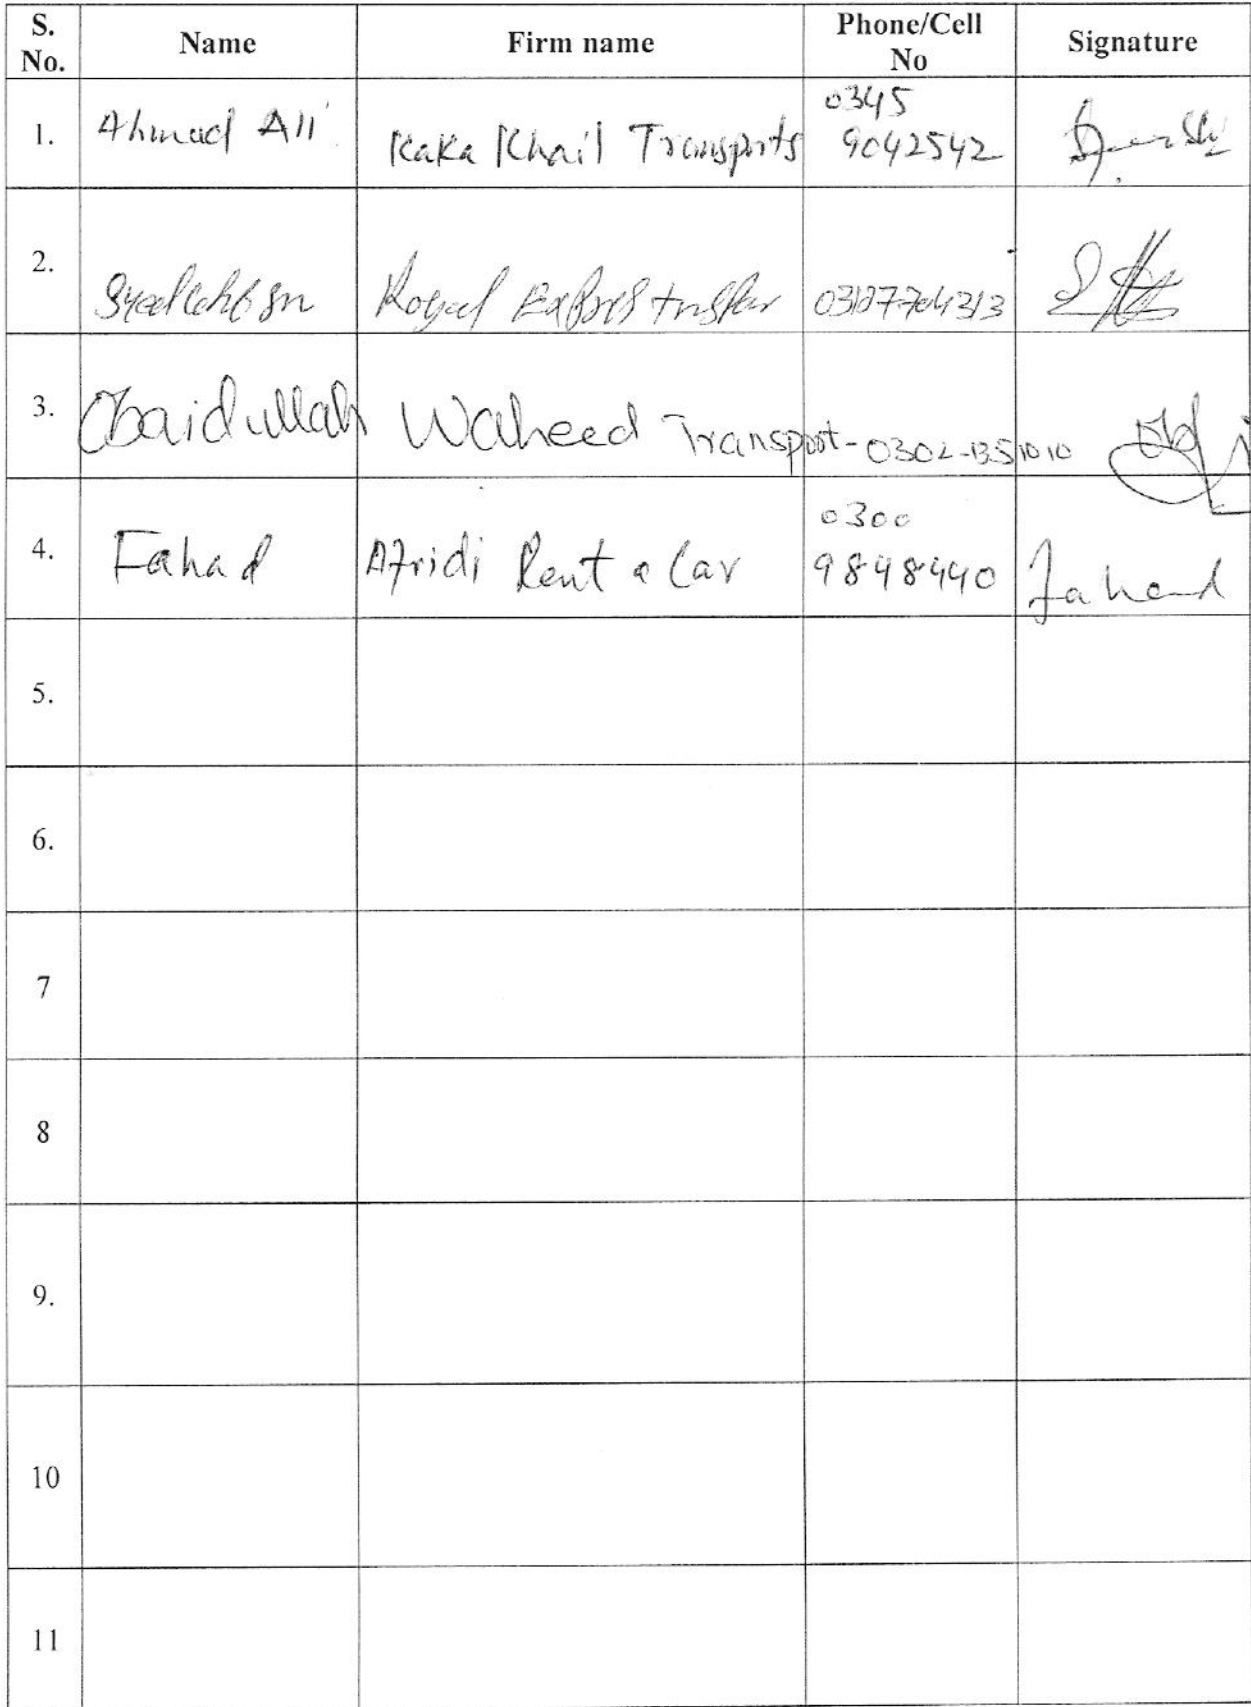 S. No. Name Firm name Phone/Cell No Signature
1. Ahmad Ali Kaka Khail Transports 0345 9042542
2. Royal
3. Obaidullah Waheed Transport - 0302-1351010
4. Fahad Afridi Rent a Car 0300 9848440 Fahad
5.
6.
7
8
9.
10
11